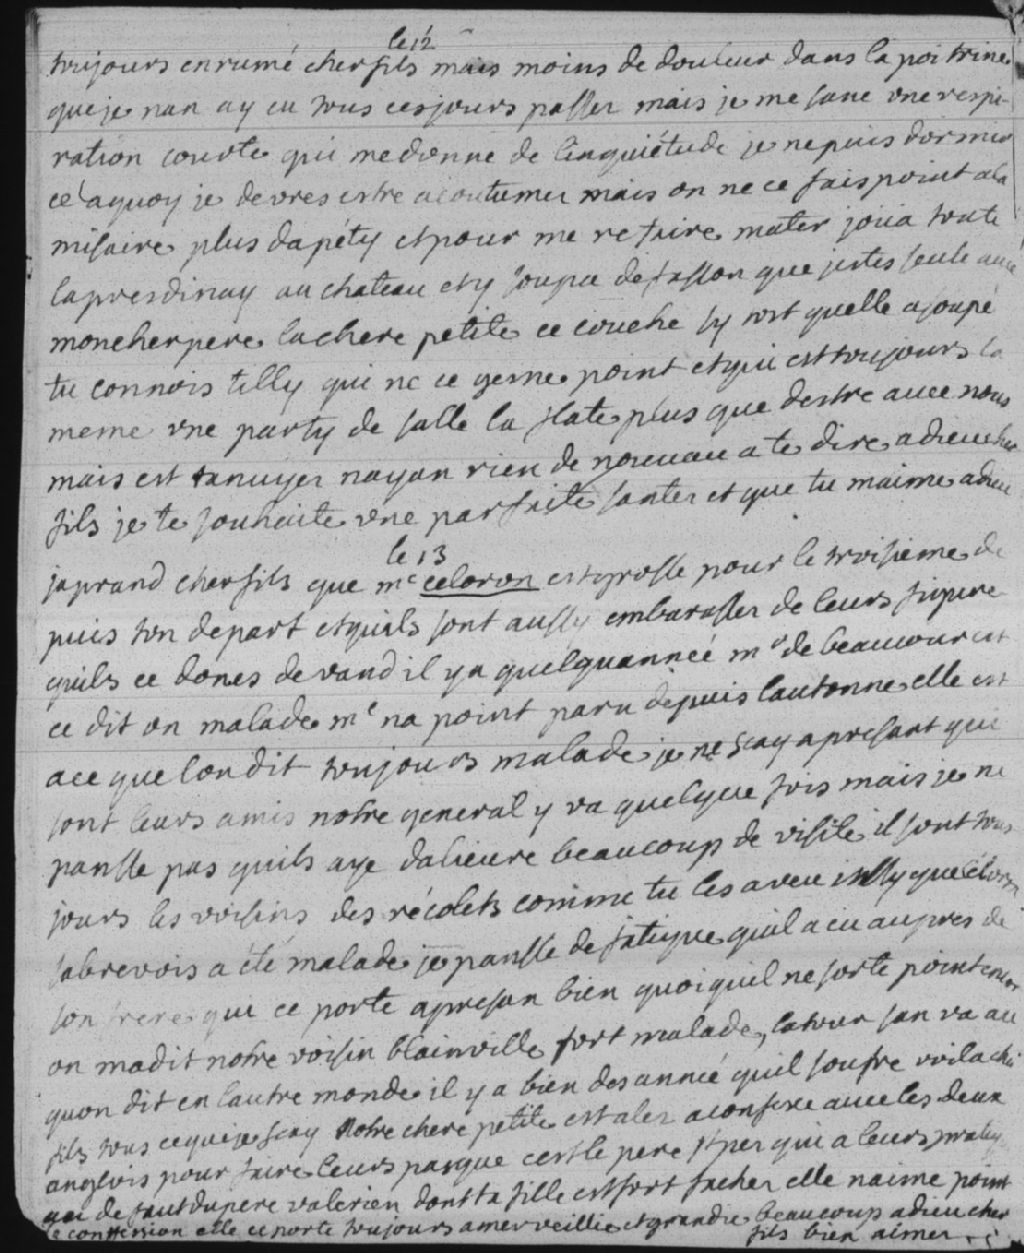 le 12
toujours enrumé cher fils mais moins de douleur dans la poi trine
que je nan ay eu tous ces jours passer mais je me sane une respi-
ration courte qui me donne de linquiétude je ne puis dormir
ce a quoy je devres estre acoutumer mais on ne ce fais point a la
misaire plus dapéty et pour me refaire mater joüa toute
lapresdinay au chateau et y soupa de fasson que jestes seule avec
mon cher pere la chere petite ce couche sy tost quelle a soupé
tu connois tilly qui ne ce gesne point et qui est toujours la
meme une party de salle la flate plus que destre avec nous
mais est tanuyer nayan rien de nouveau a te dire adieu cher
fils je te souhaite une parfaite santer et que tu maime adieu
le 13
japrand cher fils que me celoron est grosse pour le troisieme de
puis ton depart et quils sont aussy embarasser de leurs figure
quils ce dones devand il y a quelquannéé mr de beaucour est
ce dit on malade me na point paru depuis lautonne elle est
a ce que lon dit toujours malade je ne scay apresant qui
sont leurs amis notre general y va quelque fois mais je ne
pansse pas quils aye dalieure beaucoup de visite il sont tous
jours les voisins des récolets comme tu les a veu
sabrevois a été malade je pansse de fatigue quil a eu aupres de
son frere qui ce porte apresan bien quoi quil ne sorte point encor
on madit notre voisin blainville fort malade, latour san va au
quon dit en lautre monde il y a bien des anneé quil soufre voila cher
fils tous ce que je scay notre chere petite est aler a confesse avec les deux
anglois pour faire leurs pasque cest le pere st per qui a leurs pratiq
au de faut du pere valerien dont ta fille est fort facher elle naime point
le confession elle ce porte toujours a merveillie et grandie beaucoup adieu cher
fils bien aimer